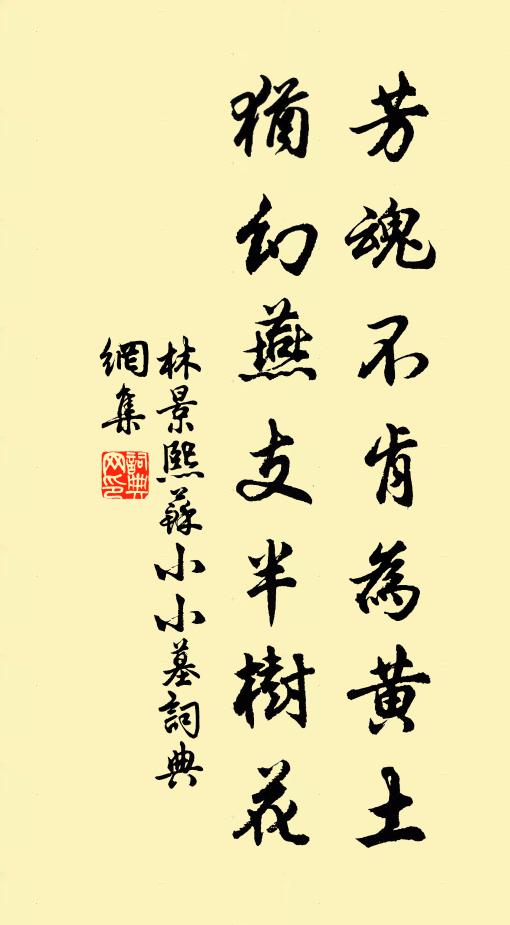 芳魂不肯為黃土
猶幻燕支半樹花
林景熙蘇小小墓詞典
網集
詞典網印